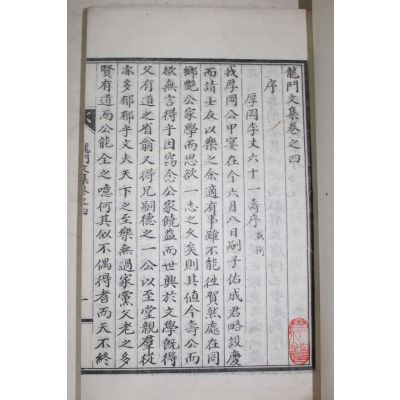 龍門文集卷之四
序
厚岡李丈六十一壽序
我厚岡公甲宴在今六月八日嗣子佑成君略設慶
而請士友以樂之余適有事雖不能往賀然處在同
鄉艷公家學而思欲一志之久矣則其値今壽公而
欲無言得乎因竊念公家饒益而世興於文學旣得
父有道之省翁又得兄嗣德之一公以至堂親羣從
亦多郁郁乎文夫天下之至樂無過家黨父老之多
賢有道而公能全之噫何其似不偶得者而天不終
龍門文集卷之四
一